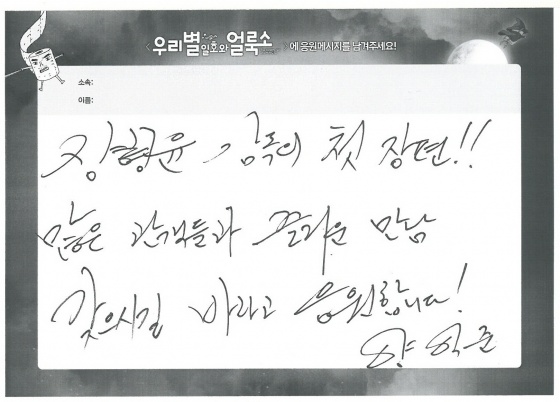 우리별 일호와 얼룩소 에 응원메시지를 남겨주세요!
소속:
이름:
장형윤 감독의 첫 장편!!
많은 관객들과 즐거운 만남
갖으시길 바라고 응원합니다!
양익준